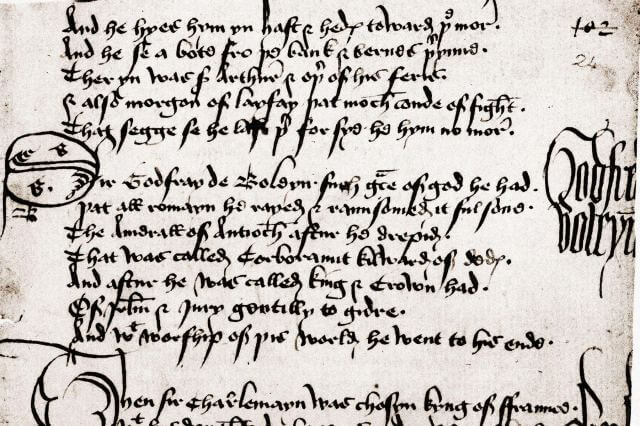 And he hyes hym yn hast & hedes toward þe mor.
And he se a bote fro þe bank & berndes þerynne.
Theryn was sr Arthure & oþer of his feris
& also morgon of layfay þat moch conde of sight.
That segge se he last þer for syd he hym no mor.
Sir Godfray de Boldyn such grce of god he had.
þat all romayn he rayed & raunsomed it ful sone.
The Amdrall of Antioch aftur he drepid.
That was called Corboraunt kilward of dedes
And aftur he was called king & Crown had.
Of Jrlm & Jury gentilly to gidre.
And wt worship of þis world he went to his ende.
Then sir Charlemayn was chosyn kyng of ffraunce.
102
24
Godfre
boleyn